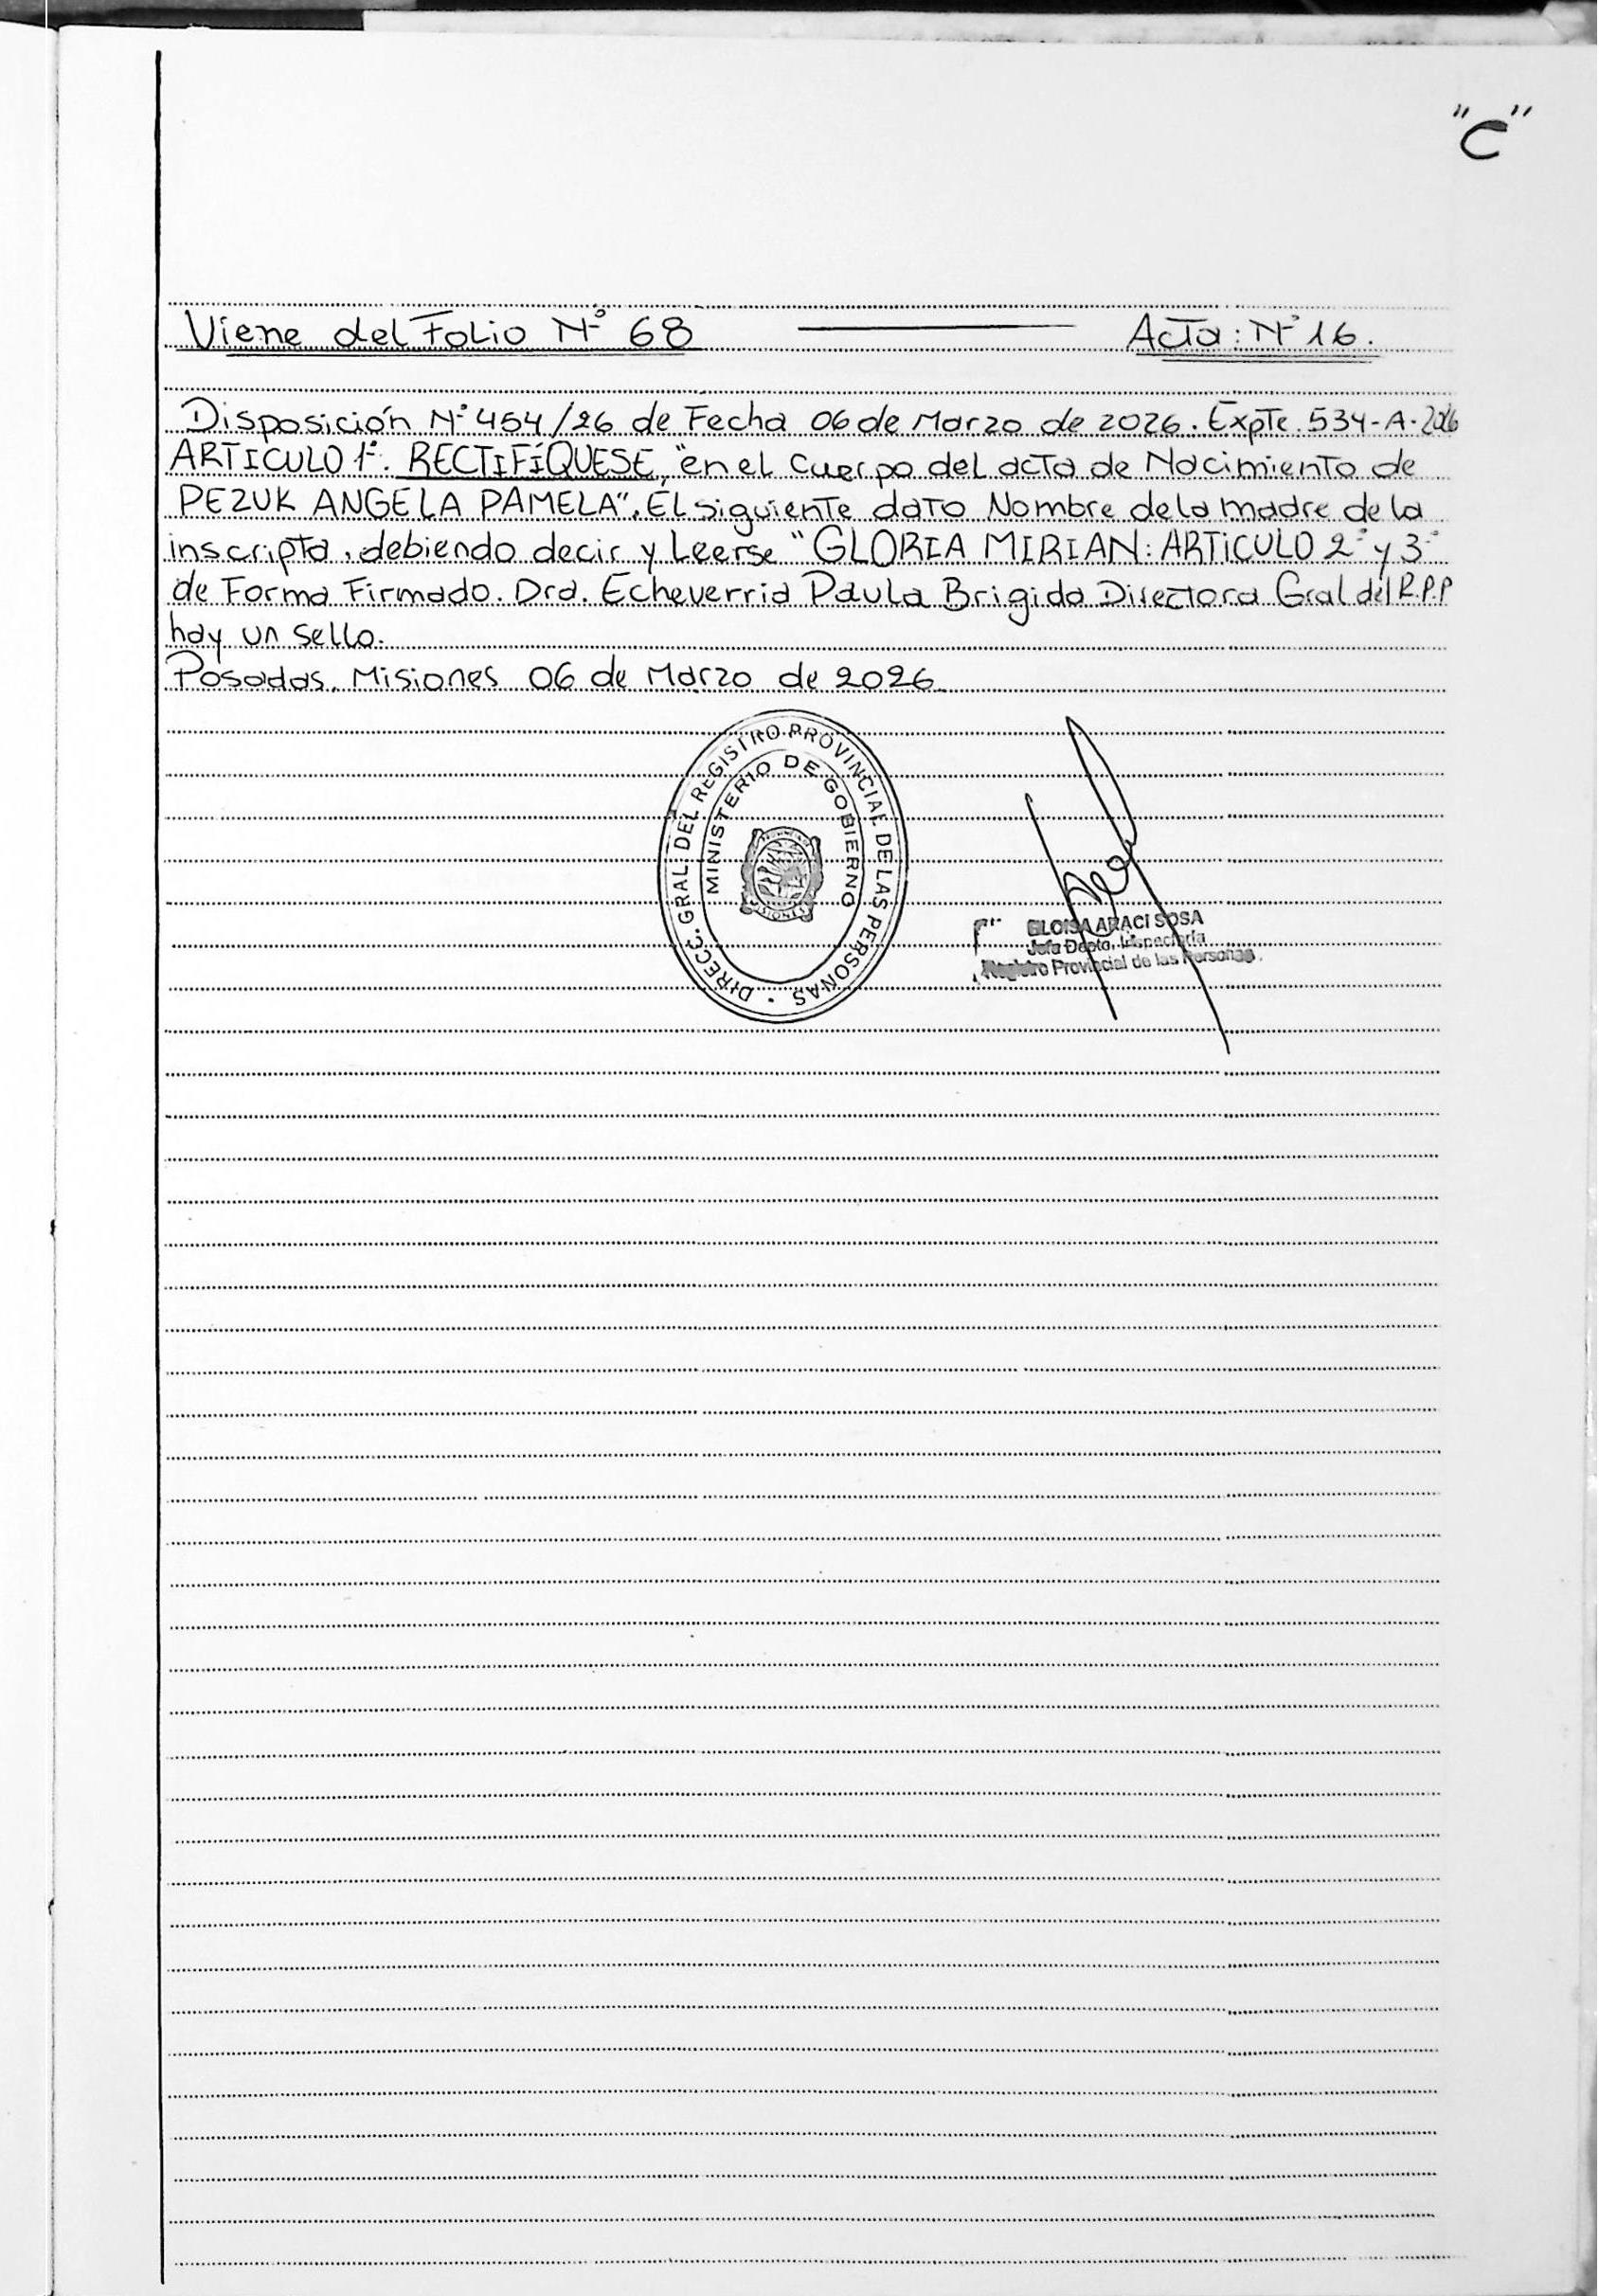 "C"
Viene del Folio N° 68 Acta: N° 16.
Disposición N° 454/26 de Fecha 06 de Marzo de 2026. Expte. 534-A-2026
ARTICULO 1°. RECTIFÍQUESE, "en el Cuerpo del acta de Nacimiento de
PEZUK ANGELA PAMELA". El siguiente dato Nombre de la madre de la
inscripta, debiendo decir y Leerse "GLORIA MIRIAN: ARTICULO 2° y 3°
de Forma Firmado. Dra. Echeverria Paula Brigida Directora Gral del R.P.P
hay un sello.
Posadas, Misiones 06 de Marzo de 2026
DIRECC. GRAL. DEL REGISTRO PROVINCIAL DE LAS PERSONAS
MINISTERIO DE GOBIERNO
MISIONES
ELOISA ARACI SOSA
Jefa Depto. Inspectoría
Registro Provincial de las Personas